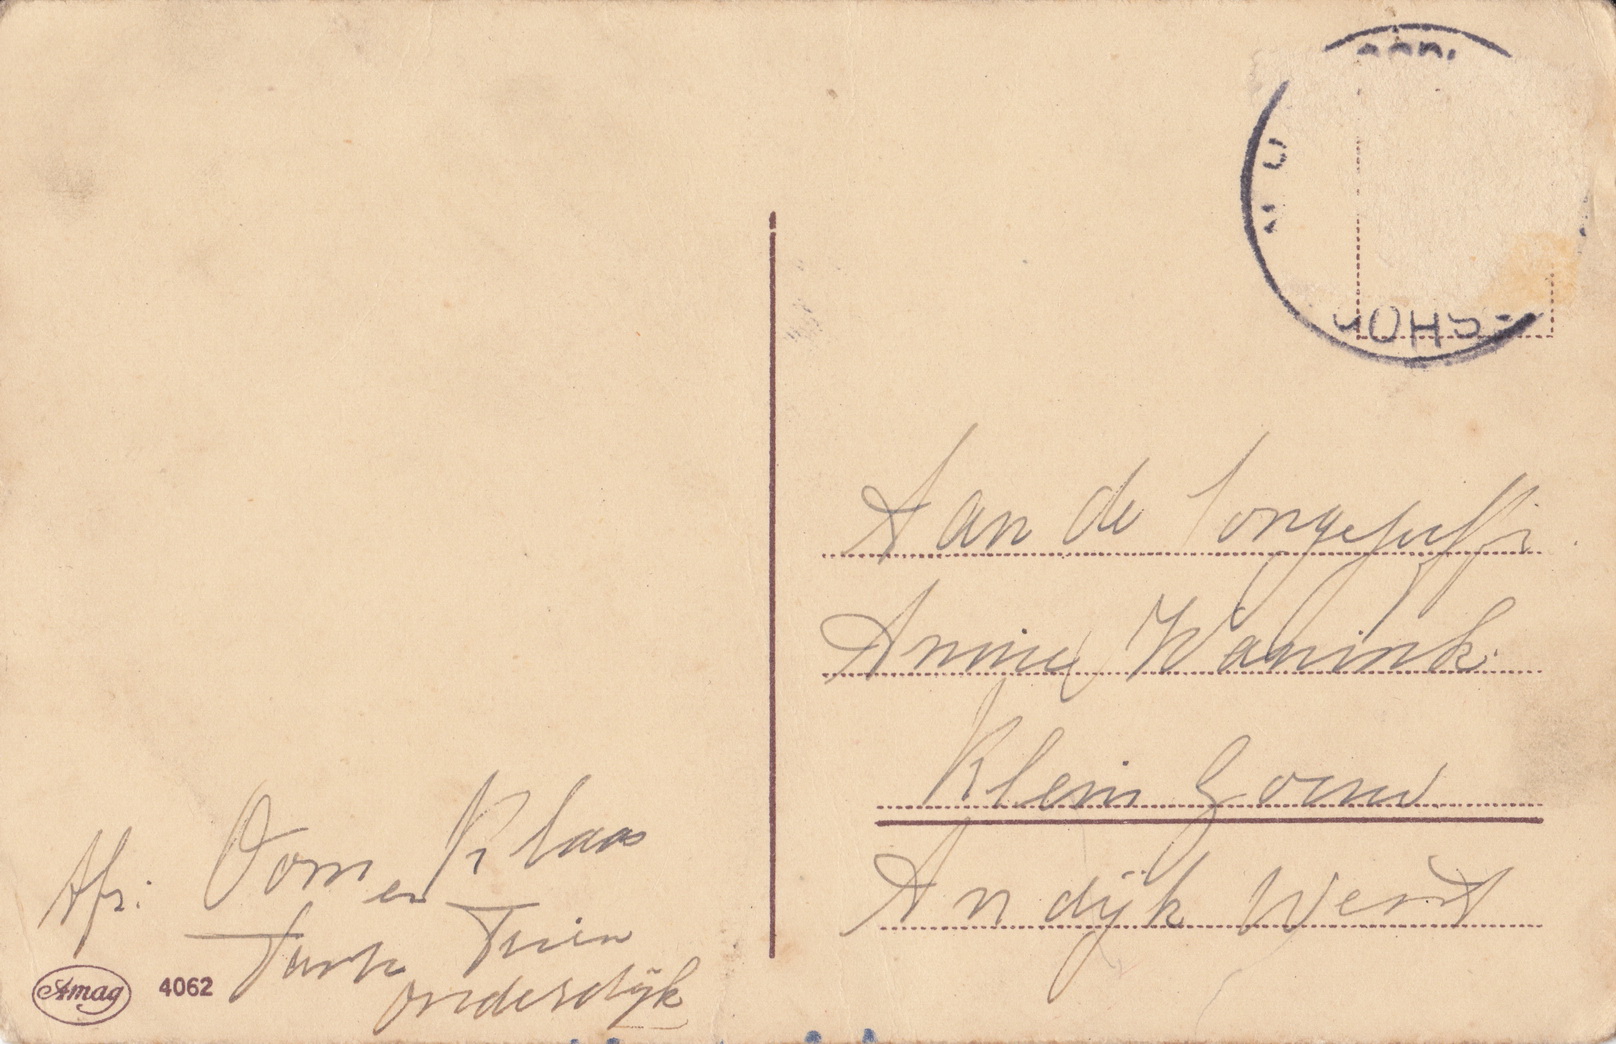 Aan de Jongejuffr.
Annie Wanink.
Klein Gouw
Andijk West
Afz: Oom en Klaas
Tante Trien
onderdijk
Amag 4062